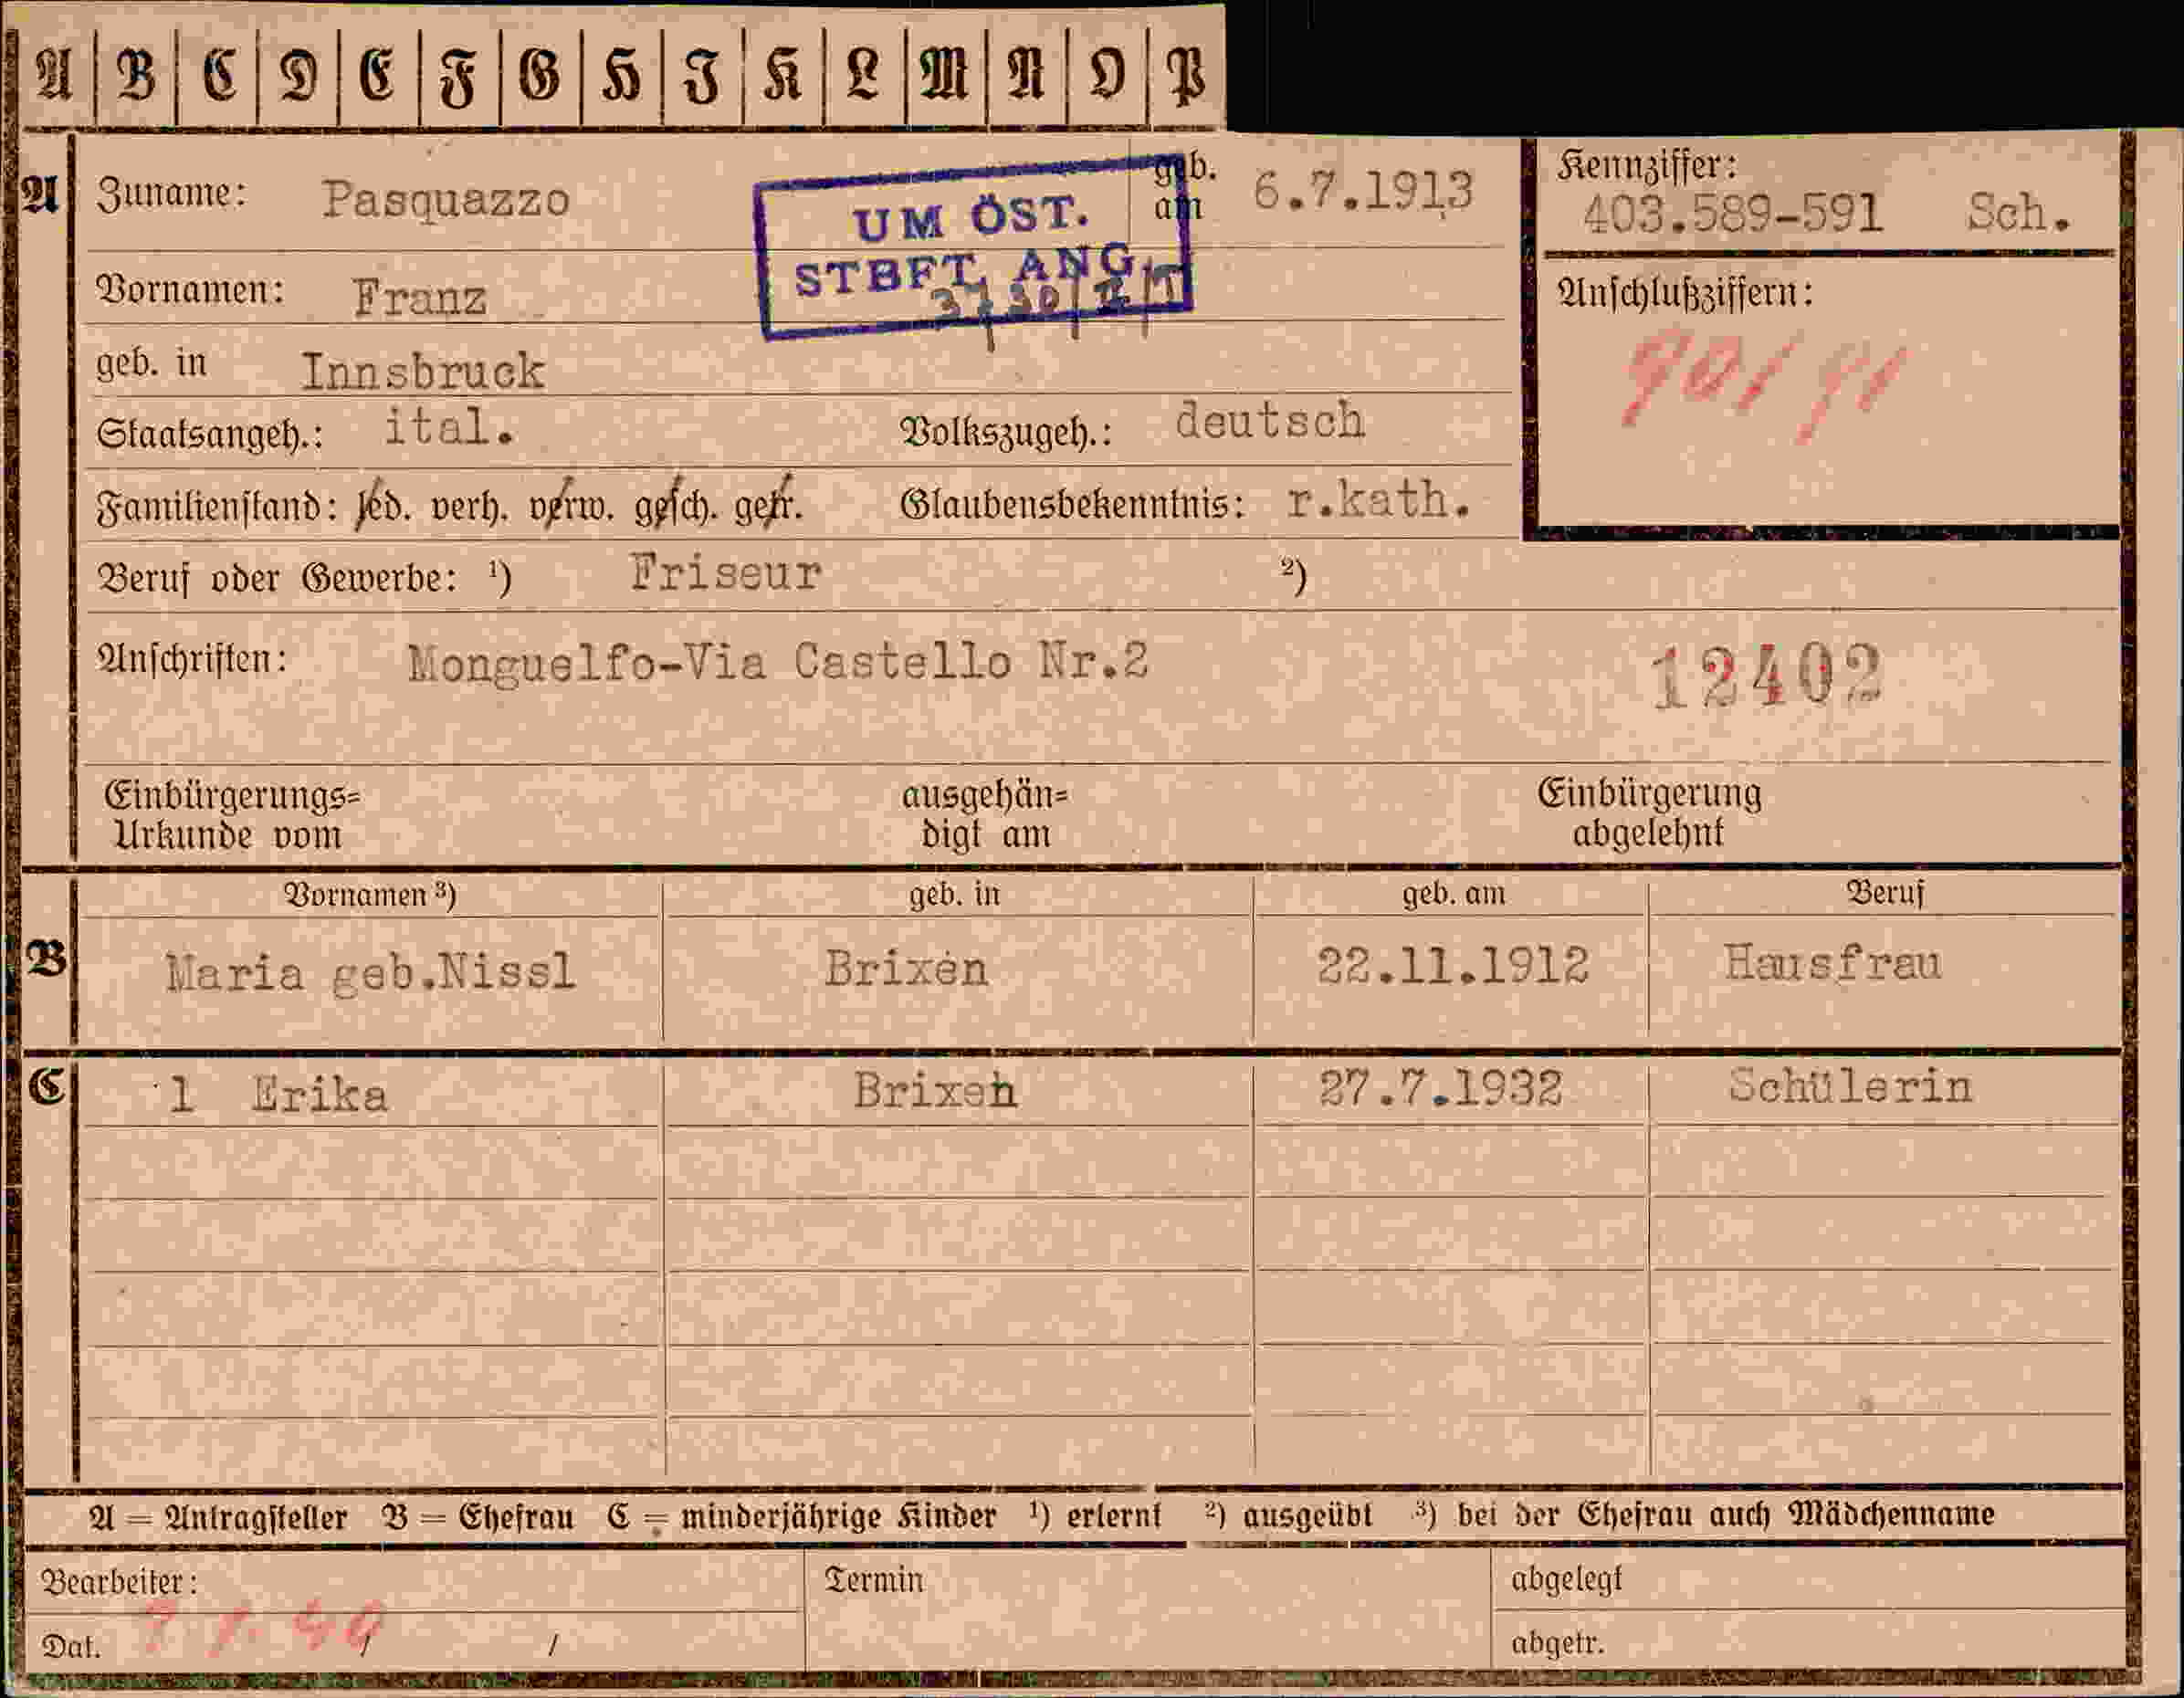 A B C D E F G H I K L M N O P
A Zuname: Pasquazzo geb. am 6.7.1913
UM ÖST.
STBFT. ANG.
Kennziffer:
403.589-591 Sch.
Vornamen: Franz
Anschlußziffern:
90/91
geb. in Innsbruck
Staatsangeh.: ital. Volkszugeh.: deutsch
Familienstand: led. verh. verw. gesch. getr. Glaubensbekenntnis: r.kath.
Beruf oder Gewerbe: ¹) Friseur ²)
Anschriften: Monguelfo-Via Castello Nr.2
12402
Einbürgerungs= ausgehän= Einbürgerung
Urkunde vom digt am abgelehnt
Vornamen ³) geb. in geb. am Beruf
B Maria geb.Nissl Brixen 22.11.1912 Hausfrau
C 1 Erika Brixen 27.7.1932 Schülerin
A = Antragsteller B = Ehefrau C = minderjährige Kinder ¹) erlernt ²) ausgeübt ³) bei der Ehefrau auch Mädchenname
Bearbeiter: Termin abgelegt
Dat. / / abgetr.